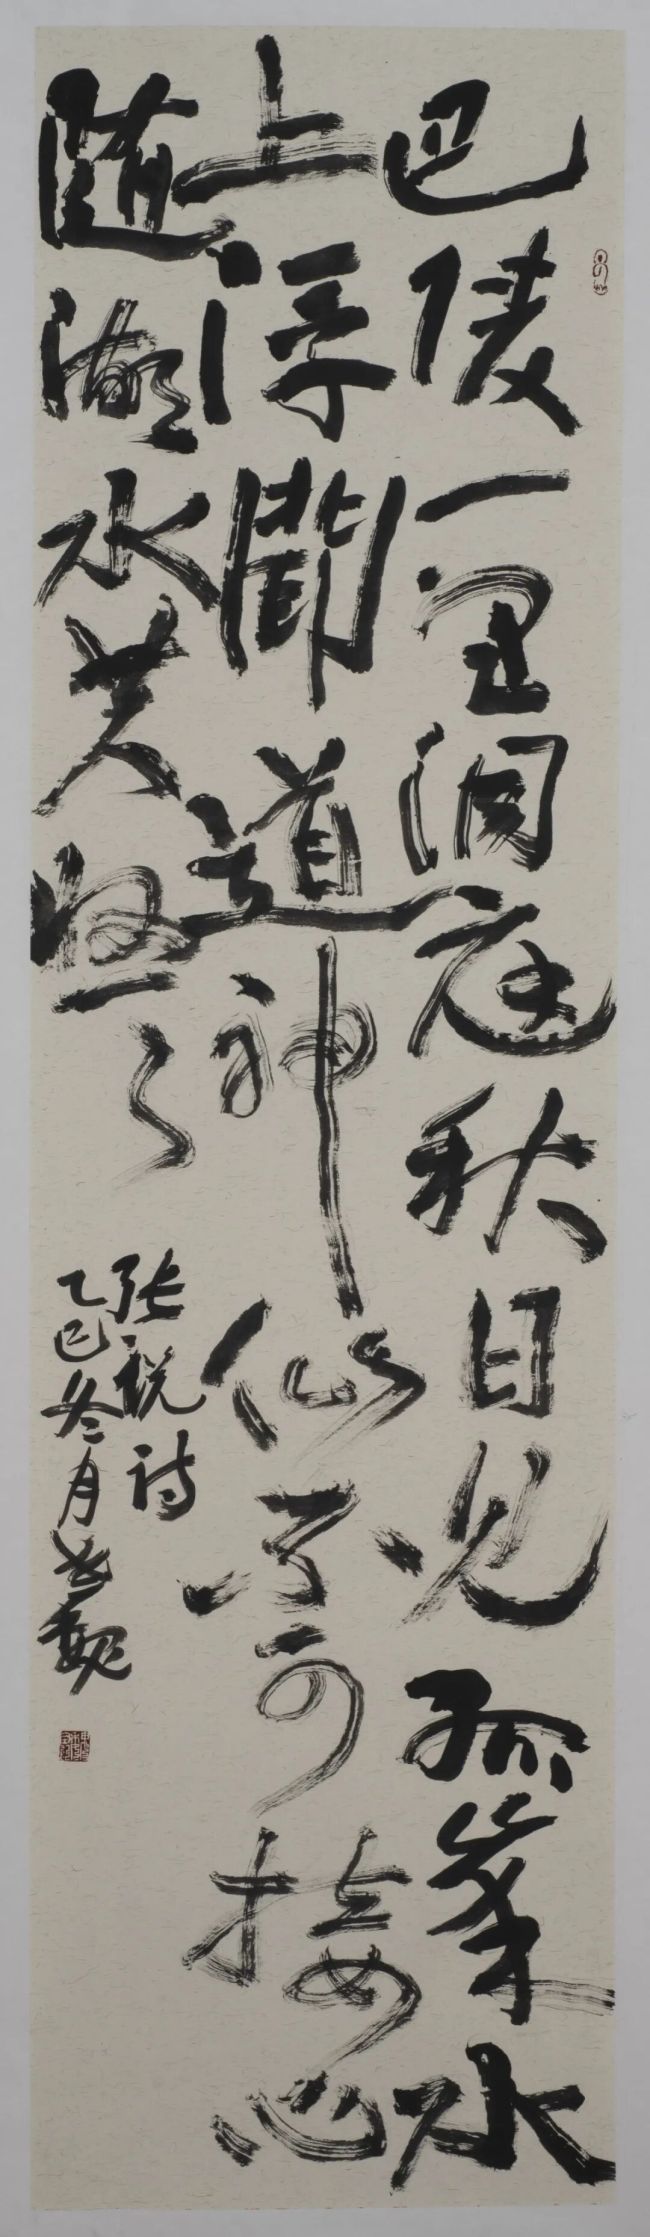 巴陵一望洞庭秋日见孤峯水
上浮聞道神仙不可接心
随湖水共悠悠
张说诗
乙巳冬月魏